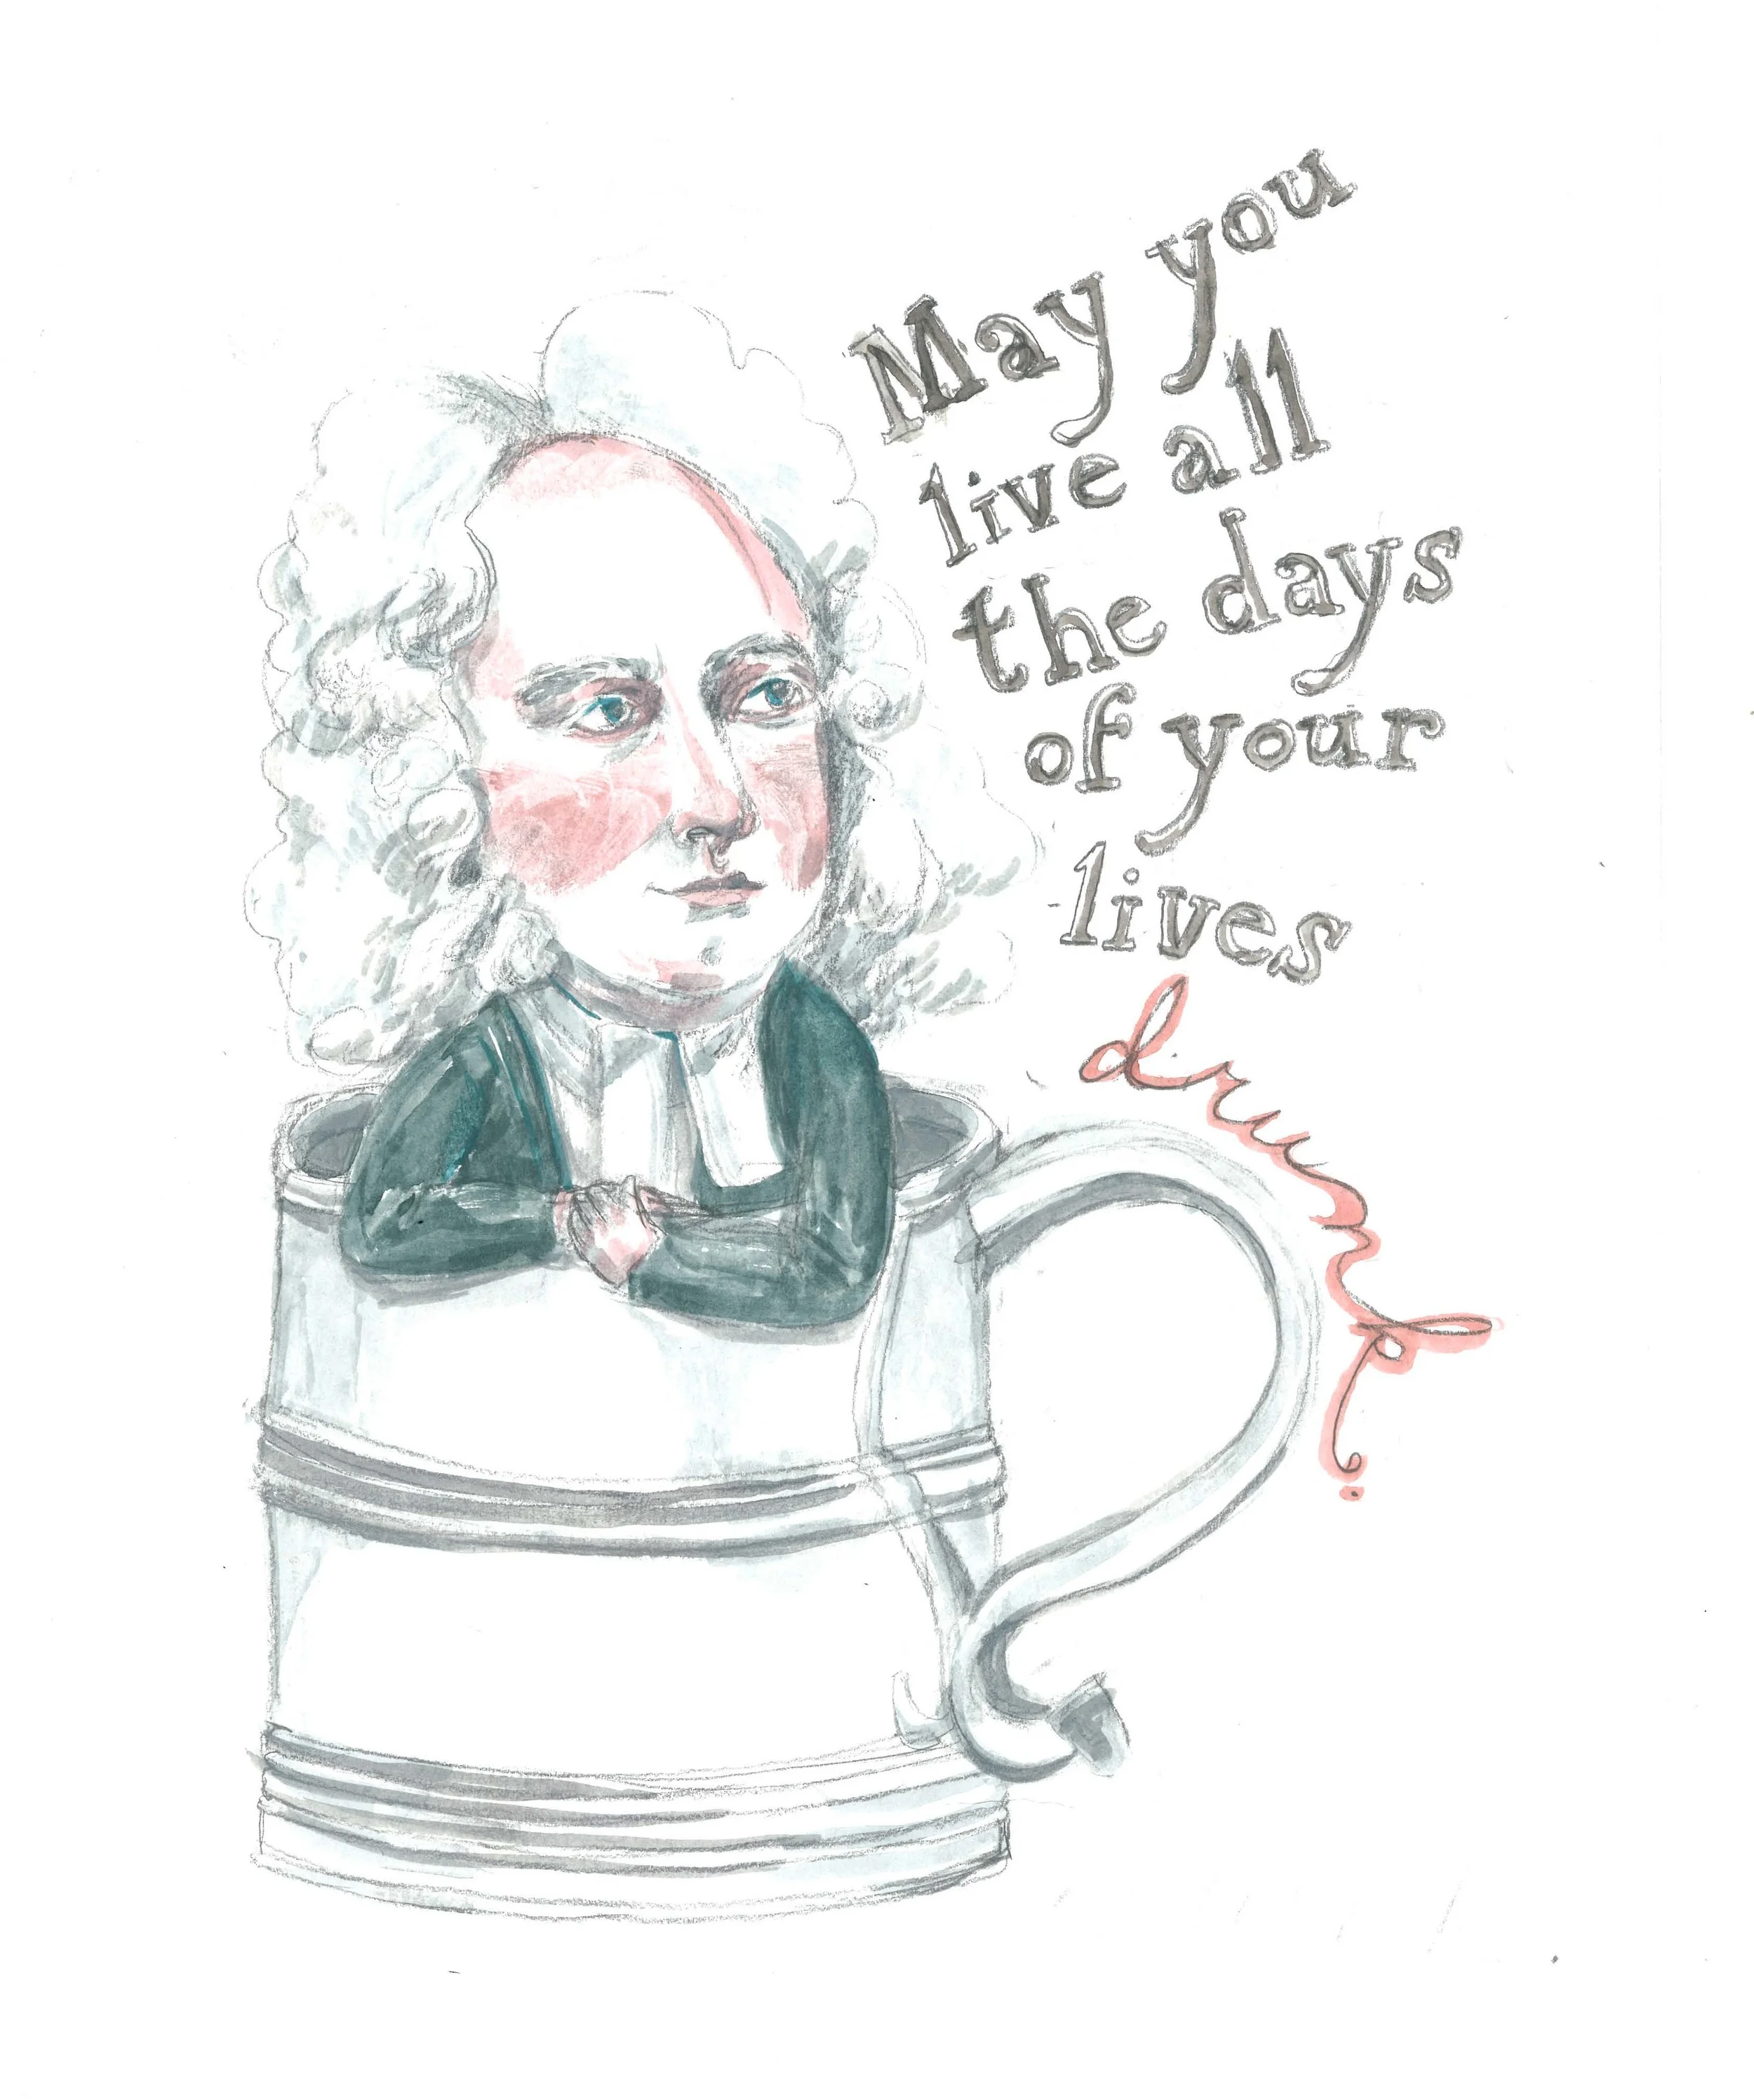 May you
live all
the days
of your
lives
drunk!